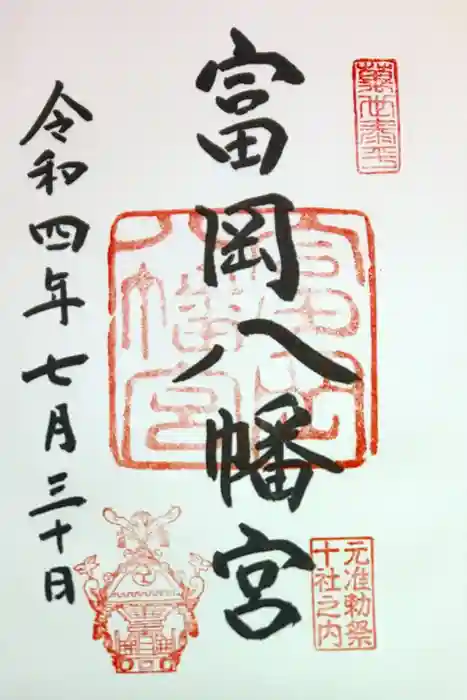 萬世泰平
富岡八幡宮
富岡八幡宮
元准勅祭
十社之内
令和四年七月三十日